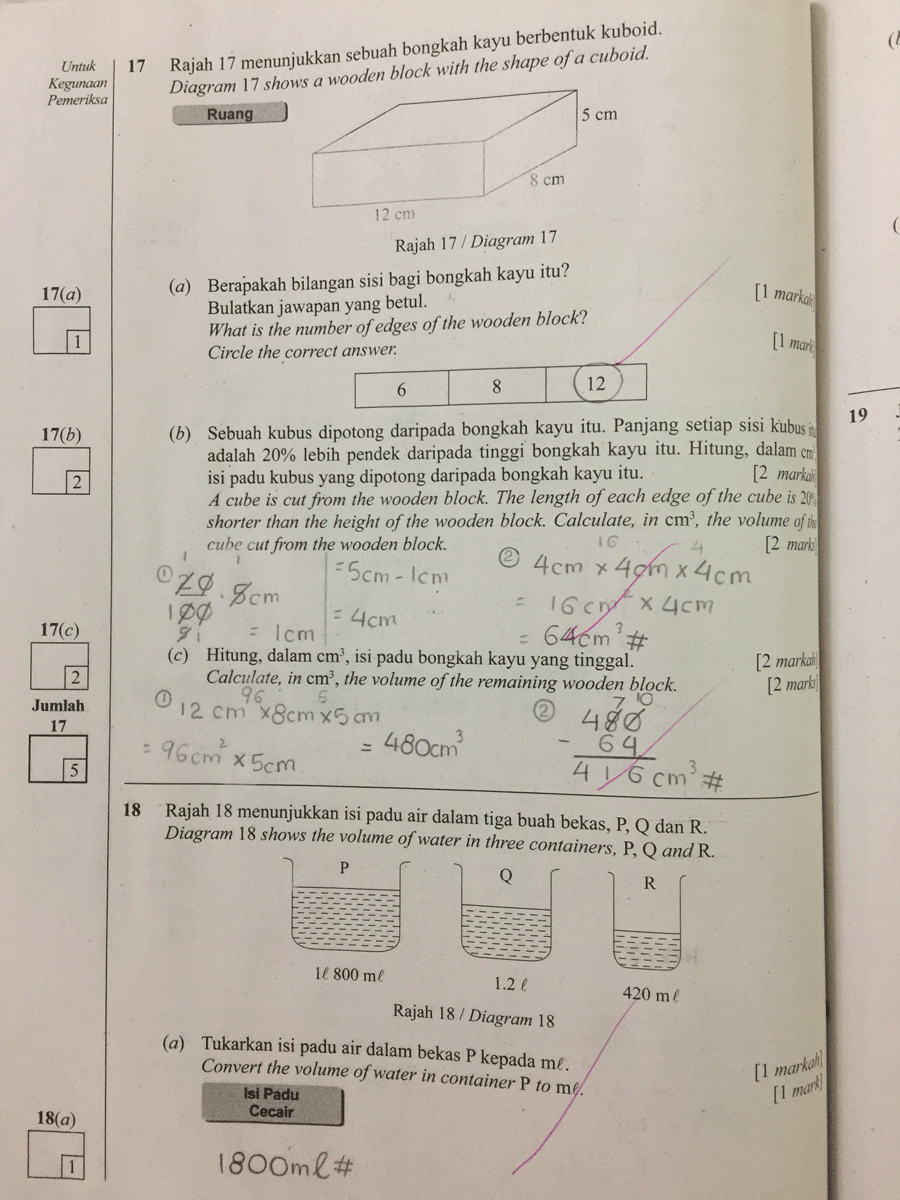 Untuk
Kegunaan
Pemeriksa
17 Rajah 17 menunjukkan sebuah bongkah kayu berbentuk kuboid.
Diagram 17 shows a wooden block with the shape of a cuboid.
Ruang
5 cm
8 cm
12 cm
Rajah 17 / Diagram 17
17(a)
1
(a) Berapakah bilangan sisi bagi bongkah kayu itu?
Bulatkan jawapan yang betul. [1 markah]
What is the number of edges of the wooden block?
Circle the correct answer. [1 mark]
6 8 12
17(b)
2
(b) Sebuah kubus dipotong daripada bongkah kayu itu. Panjang setiap sisi kubus itu
adalah 20% lebih pendek daripada tinggi bongkah kayu itu. Hitung, dalam cm³,
isi padu kubus yang dipotong daripada bongkah kayu itu. [2 markah]
A cube is cut from the wooden block. The length of each edge of the cube is 20%
shorter than the height of the wooden block. Calculate, in cm³, the volume of the
cube cut from the wooden block. [2 marks]
= 5cm - 1cm
= 4cm
= 1cm
② 4cm × 4cm × 4cm
= 16cm² × 4cm
= 64cm³ #
17(c)
2
(c) Hitung, dalam cm³, isi padu bongkah kayu yang tinggal. [2 markah]
Calculate, in cm³, the volume of the remaining wooden block. [2 marks]
① 12 cm × 8cm × 5 cm
= 96cm² × 5cm
= 480cm³
② 480
- 64
416 cm³ #
Jumlah
17
5
18 Rajah 18 menunjukkan isi padu air dalam tiga buah bekas, P, Q dan R.
Diagram 18 shows the volume of water in three containers, P, Q and R.
P Q R
1ℓ 800 mℓ
1.2 ℓ
420 mℓ
Rajah 18 / Diagram 18
(a) Tukarkan isi padu air dalam bekas P kepada mℓ. [1 markah]
Convert the volume of water in container P to mℓ. [1 mark]
Isi Padu
Cecair
18(a)
1
1800ml #
19